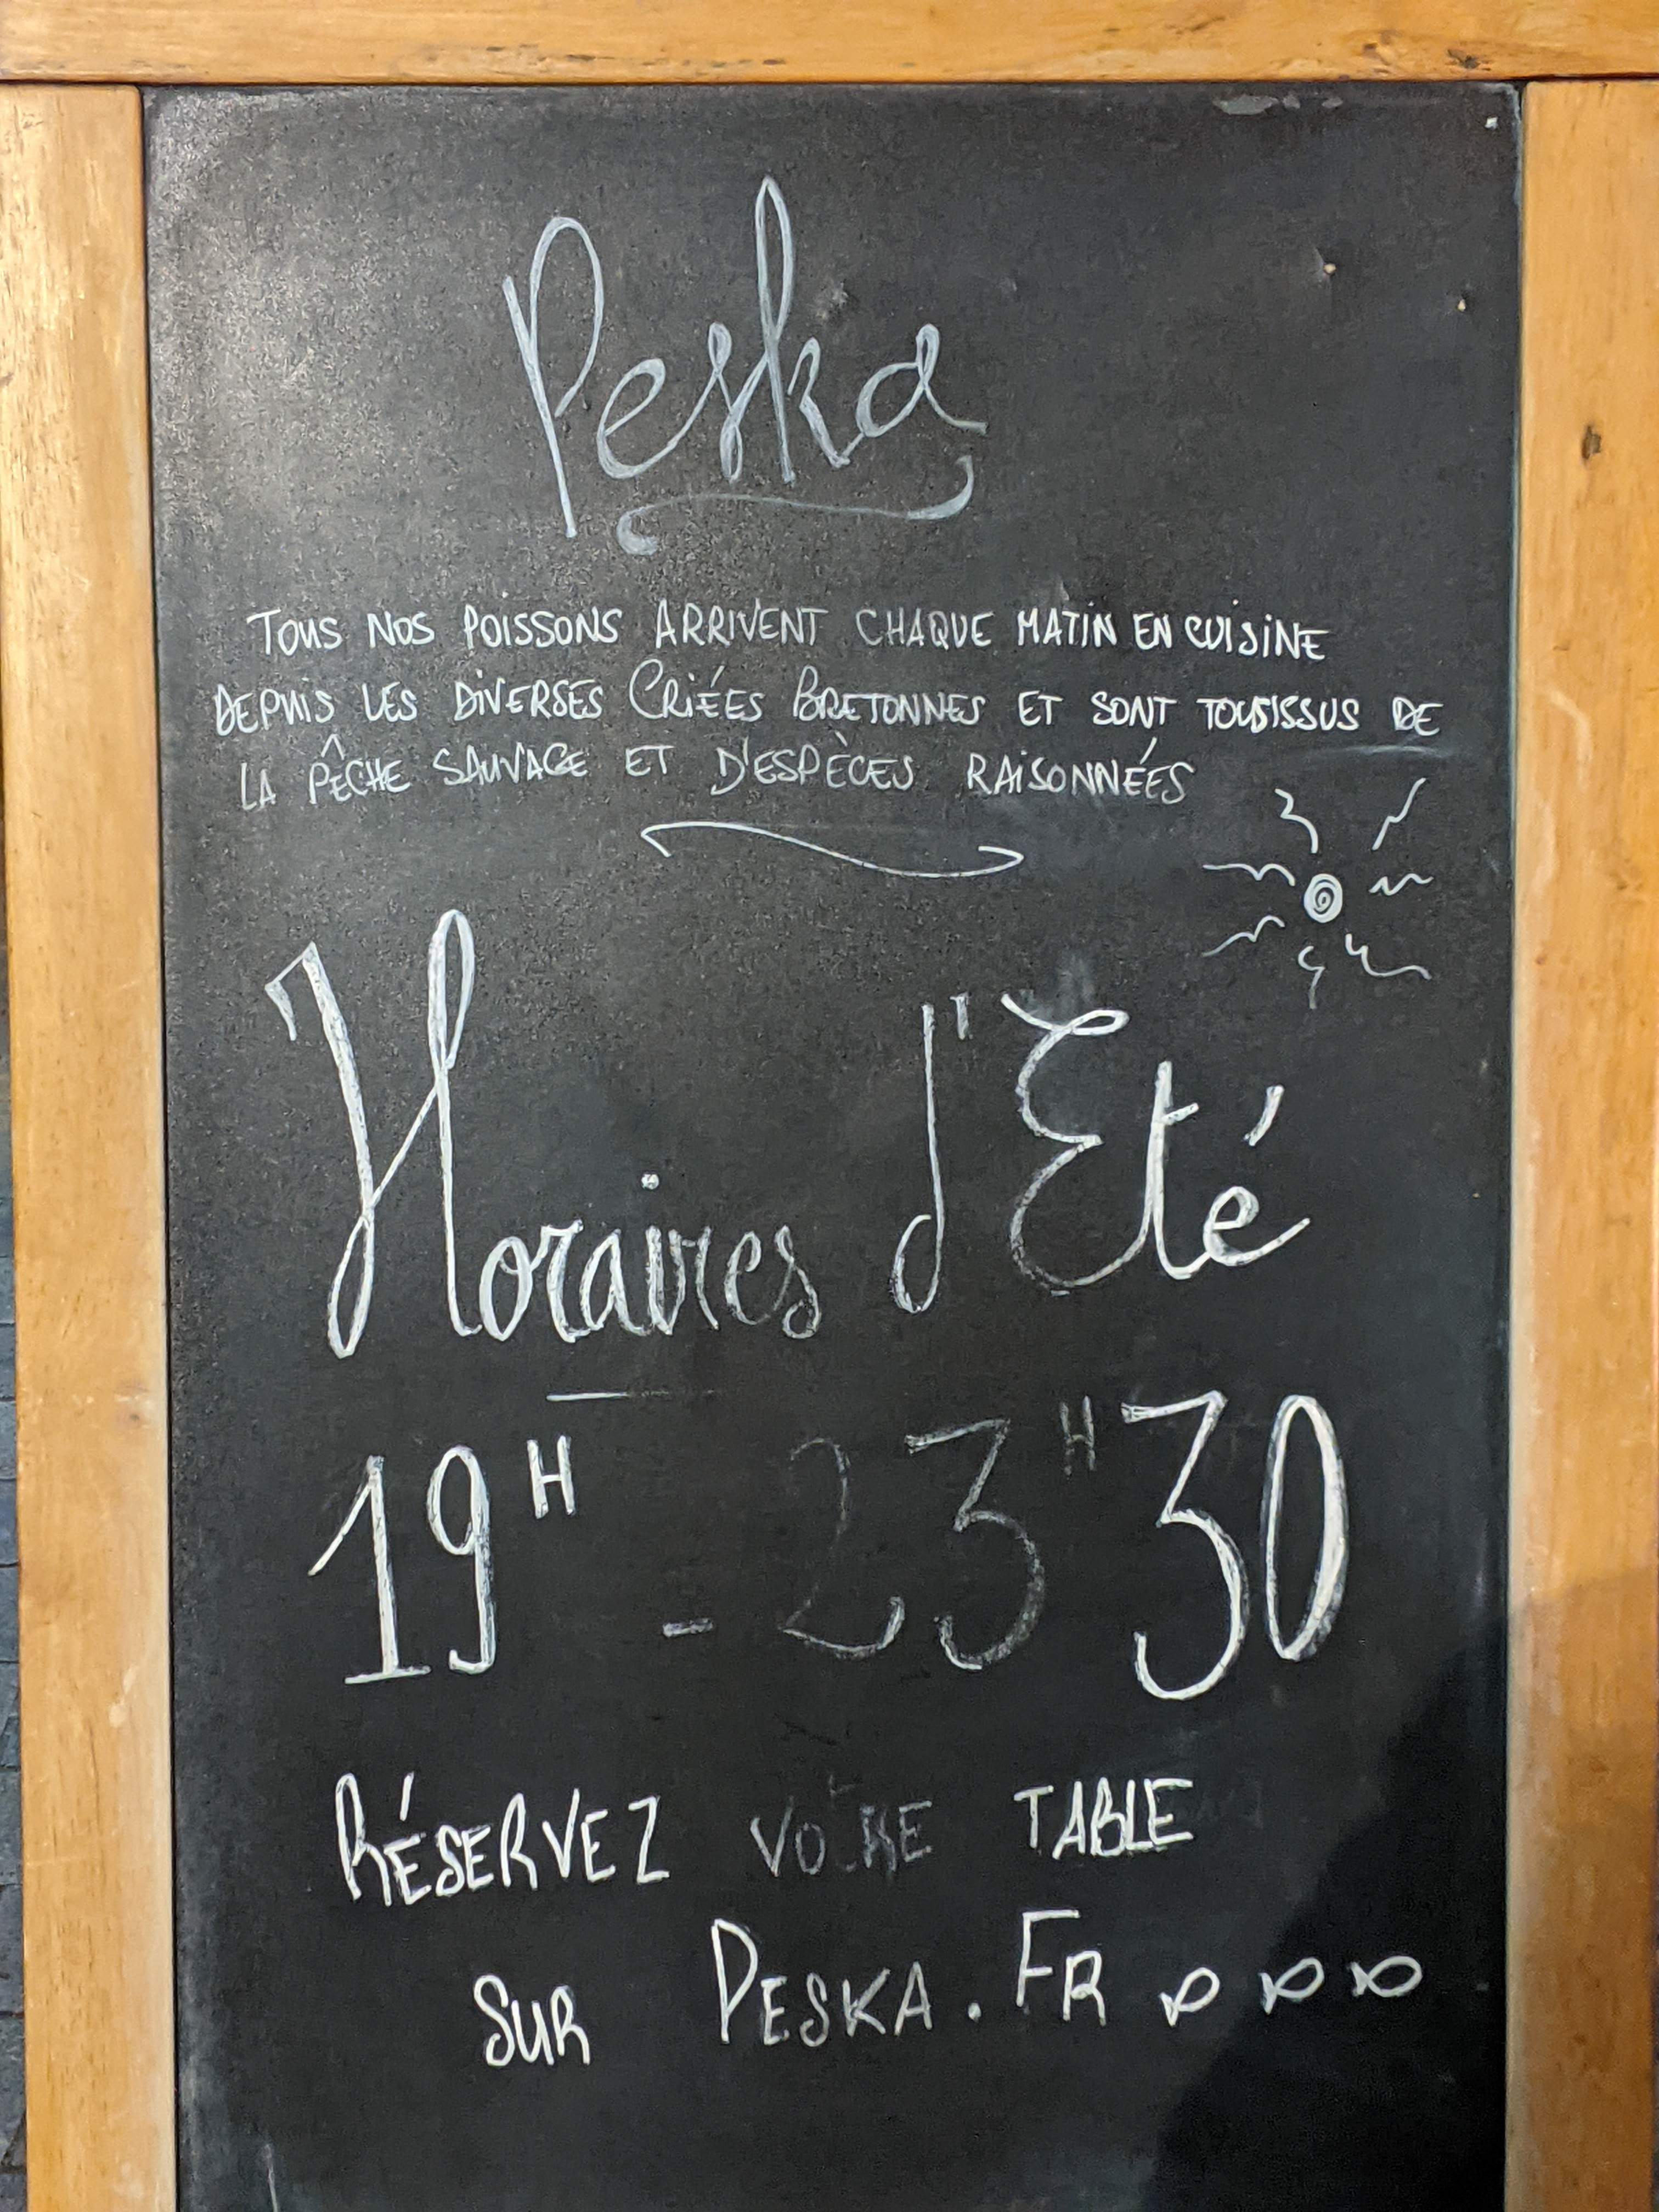 Peska
TOUS NOS POISSONS ARRIVENT CHAQUE MATIN EN CUISINE
DEPUIS LES DIVERSES CRIÉES BRETONNES ET SONT TOUS ISSUS DE
LA PÊCHE SAUVAGE ET D'ESPÈCES RAISONNÉES
Horaires d'Eté
19H - 23H30
RÉSERVEZ VOTRE TABLE
SUR PESKA.FR